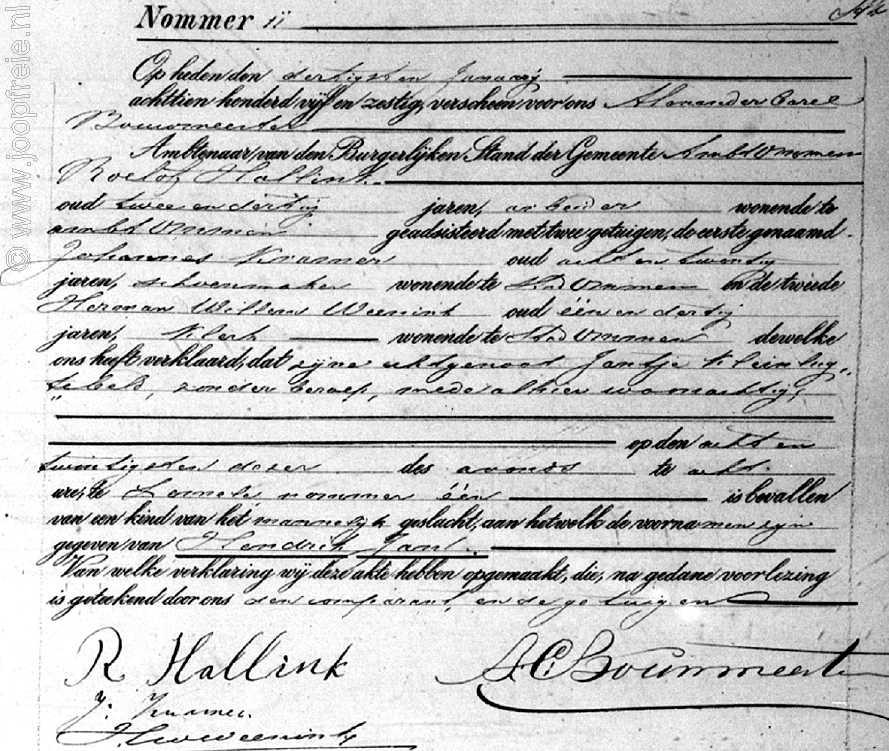 Nommer 11
Op heden den dertigsten Januarij
achttien honderd vijf en zestig, verscheen voor ons Alexander Carel
Bouwmeester
Ambtenaar van den Burgerlijken Stand der Gemeente Ambt Ommen
Roelof Hallink
oud twee en dertig jaren, arbeider wonende te
ambt Ommen geadsisteerd met twee getuigen, de eerste genaamd
Johannes Kramer oud acht en twintig
jaren, schoenmaker wonende te Stad Ommen en de tweede
Herman Willem Weenink oud één en dertig
jaren, klerk wonende te Stad Ommen dewelke
ons heeft verklaard, dat zijne echtgenoot Jentje
zonder beroep, mede alhier woonachtig,
op den acht en
twintigsten dezer des avonds te acht
ure, te Lemele nommer één is bevallen
van een kind van het mannelijk geslacht, aan hetwelk de voornamen zijn
gegeven van Hendrik Jan
Van welke verklaring wij deze akte hebben opgemaakt, die, na gedane voorlezing
is geteekend door ons den comparant, en de getuigen
R Hallink
A.C. Bouwmeester
J: Kramer.
H W Weenink
© www.joopfreie.nl